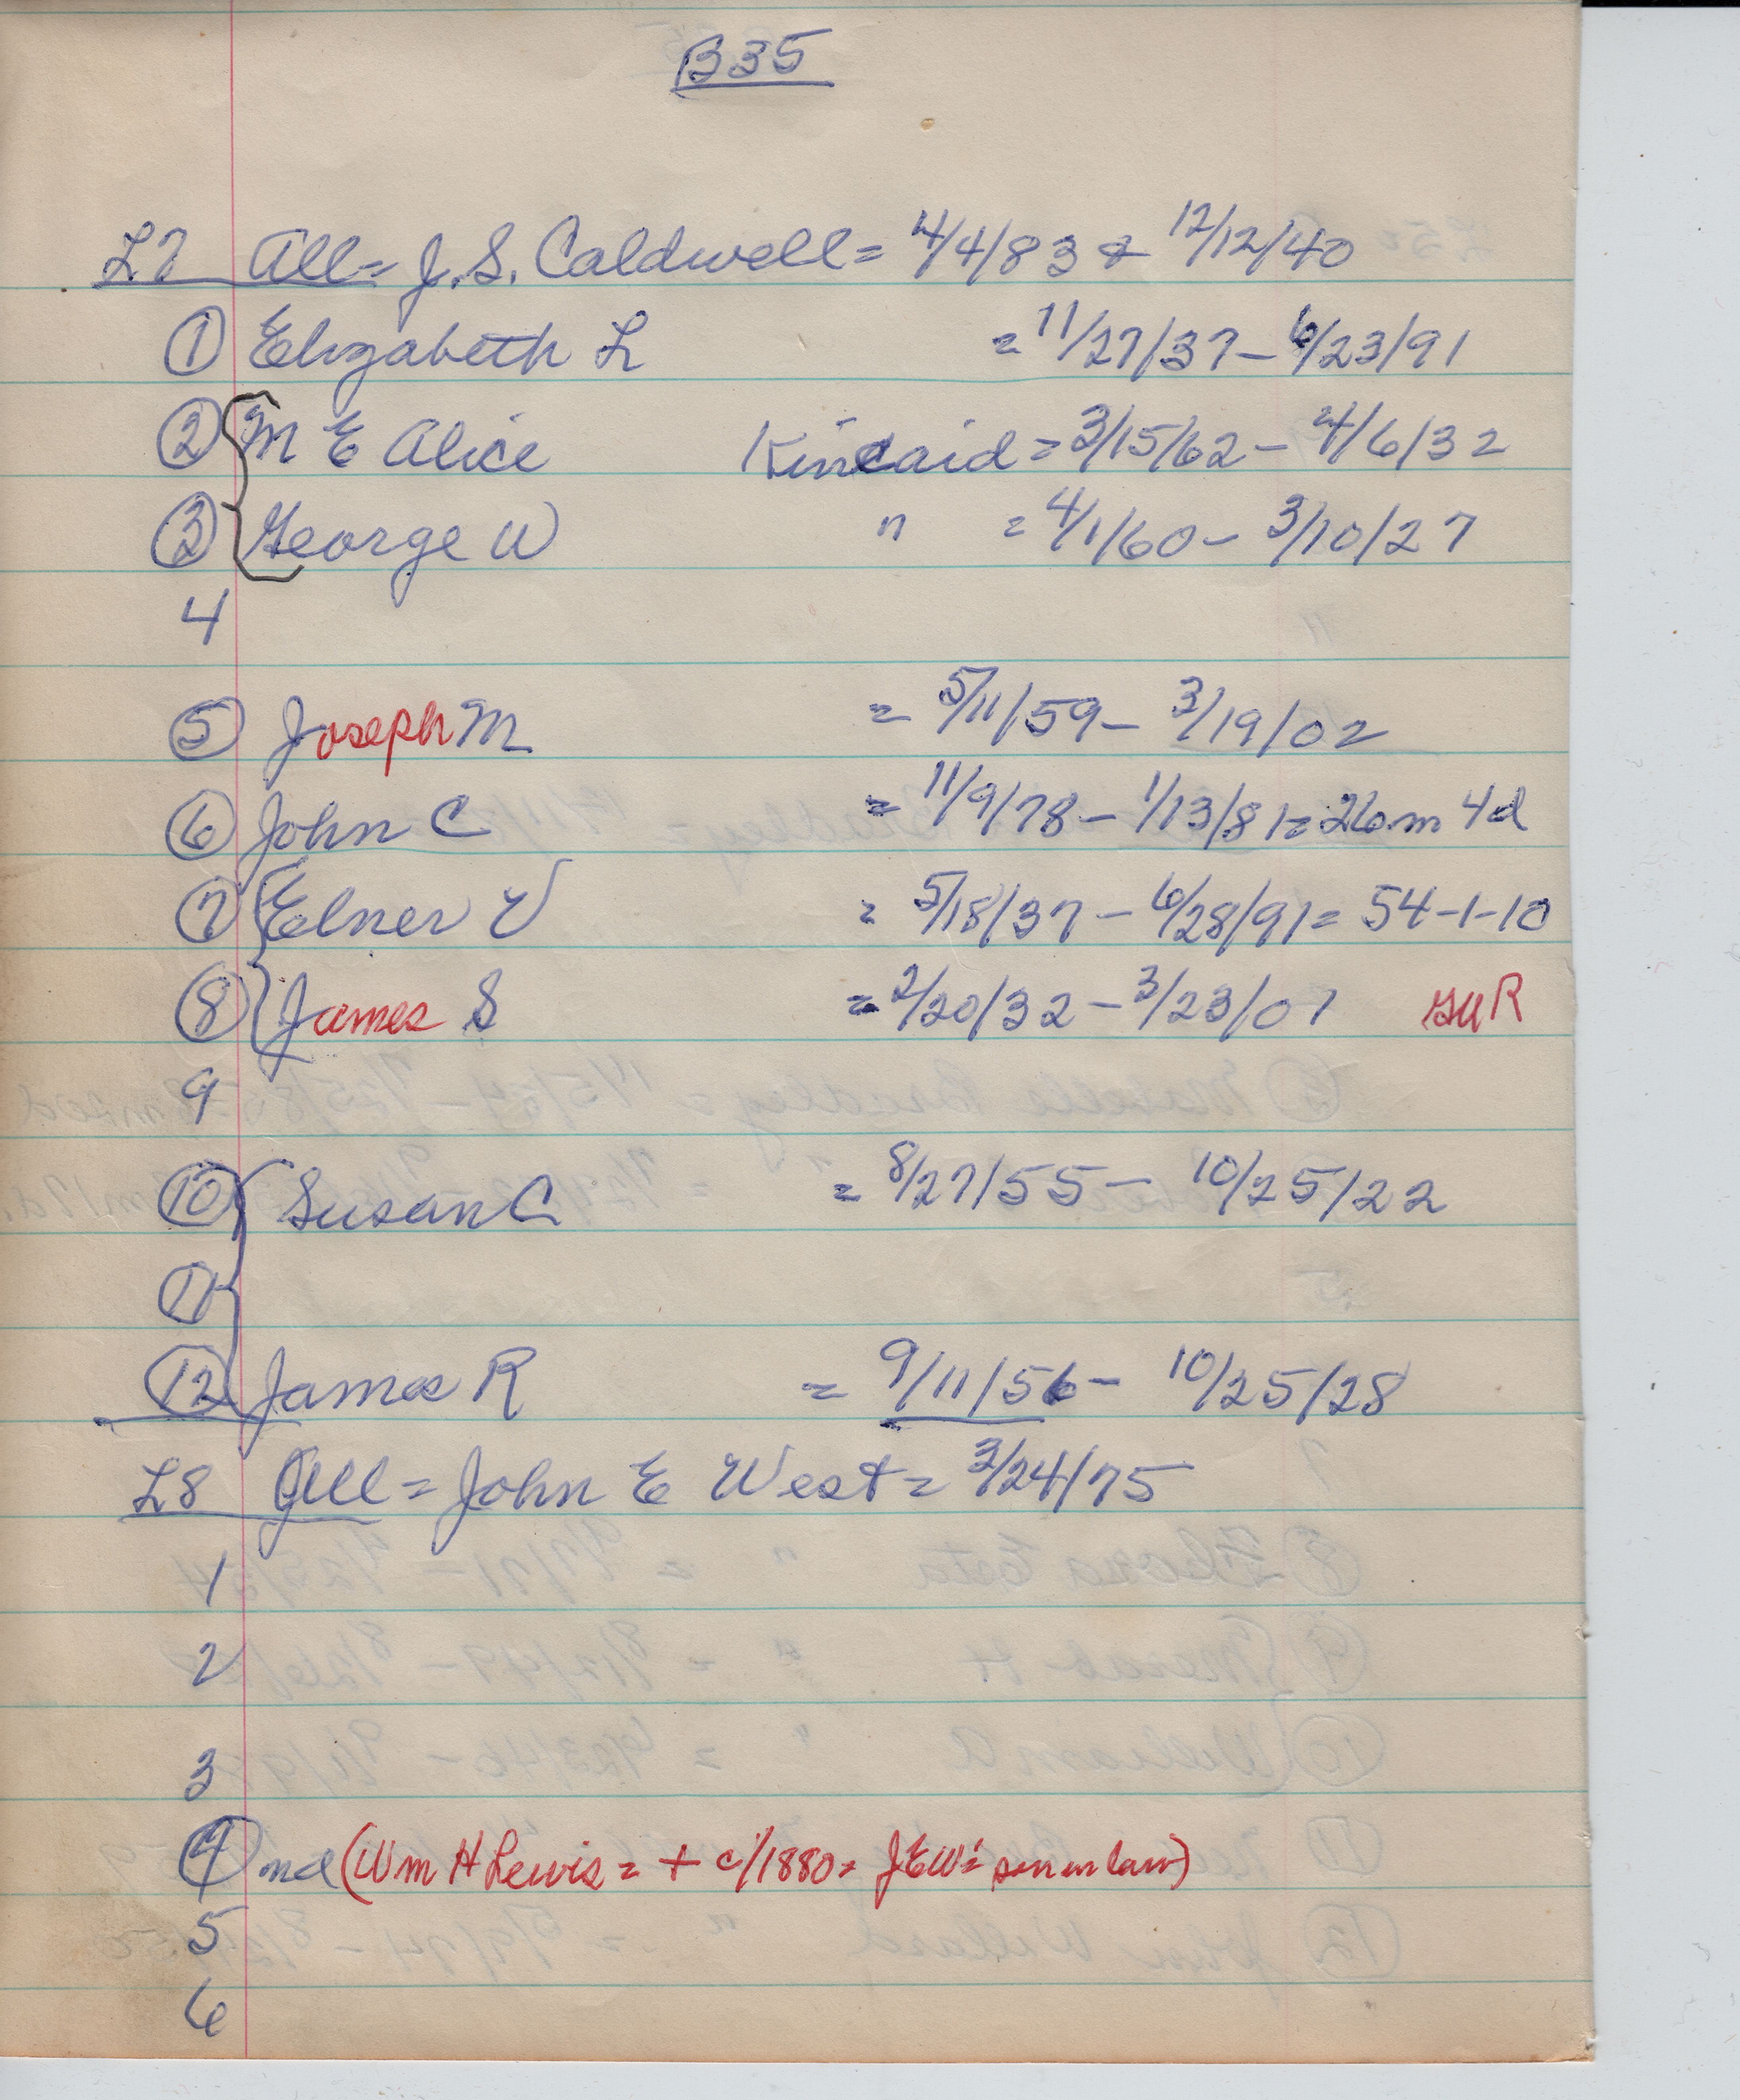 B35
L7 All = J. S. Caldwell = 4/4/83 & 12/12/40
1 Elizabeth L = 11/27/37 - 6/23/91
2 M E Alice Kincaid = 3/15/62 - 4/6/32
3 George W " = 4/1/60 - 3/10/27
4
5 Joseph M = 5/11/59 - 3/19/02
6 John C = 11/9/78 - 1/13/81 = 26m 4d
7 Elner V = 5/18/37 - 6/28/91 = 54-1-10
8 James S = 2/20/32 - 3/23/07
9
10 Susan C = 8/27/55 - 10/25/22
11
12 James R = 9/11/56 - 10/25/28
L8 All = John E West = 3/24/75
1
2
3
4 nd (Wm H Lewis = + c/1880 = JEW's son in law)
5
6